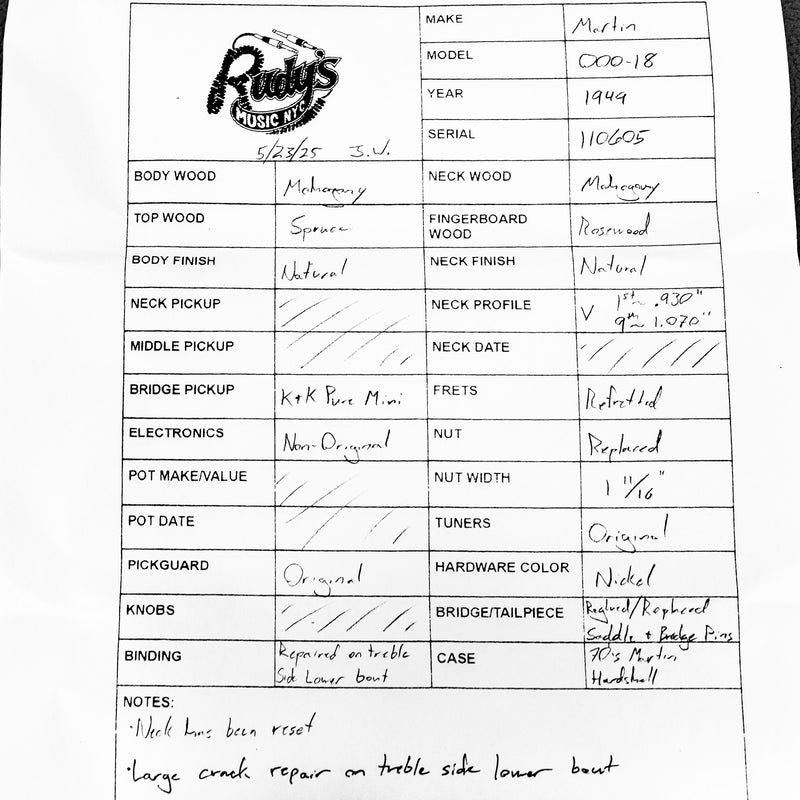 Rudy's
MUSIC NYC
5/23/25 J.W.
MAKE Martin
MODEL 000-18
YEAR 1949
SERIAL 110605
BODY WOOD Mahogany NECK WOOD Mahogany
TOP WOOD Spruce FINGERBOARD WOOD Rosewood
BODY FINISH Natural NECK FINISH Natural
NECK PICKUP NECK PROFILE V 1st~ .930"
9th~ 1.070"
MIDDLE PICKUP NECK DATE
BRIDGE PICKUP K+K Pure Mini FRETS Refretted
ELECTRONICS Non-Original NUT Replaced
POT MAKE/VALUE NUT WIDTH 1 11/16"
POT DATE TUNERS Original
PICKGUARD Original HARDWARE COLOR Nickel
KNOBS BRIDGE/TAILPIECE Reglued/Replaced
Saddle + Bridge Pins
BINDING Repaired on treble
Side Lower bout
CASE 70's Martin
Hardshell
NOTES:
·Neck has been reset
·Large crack repair on treble side lower bout